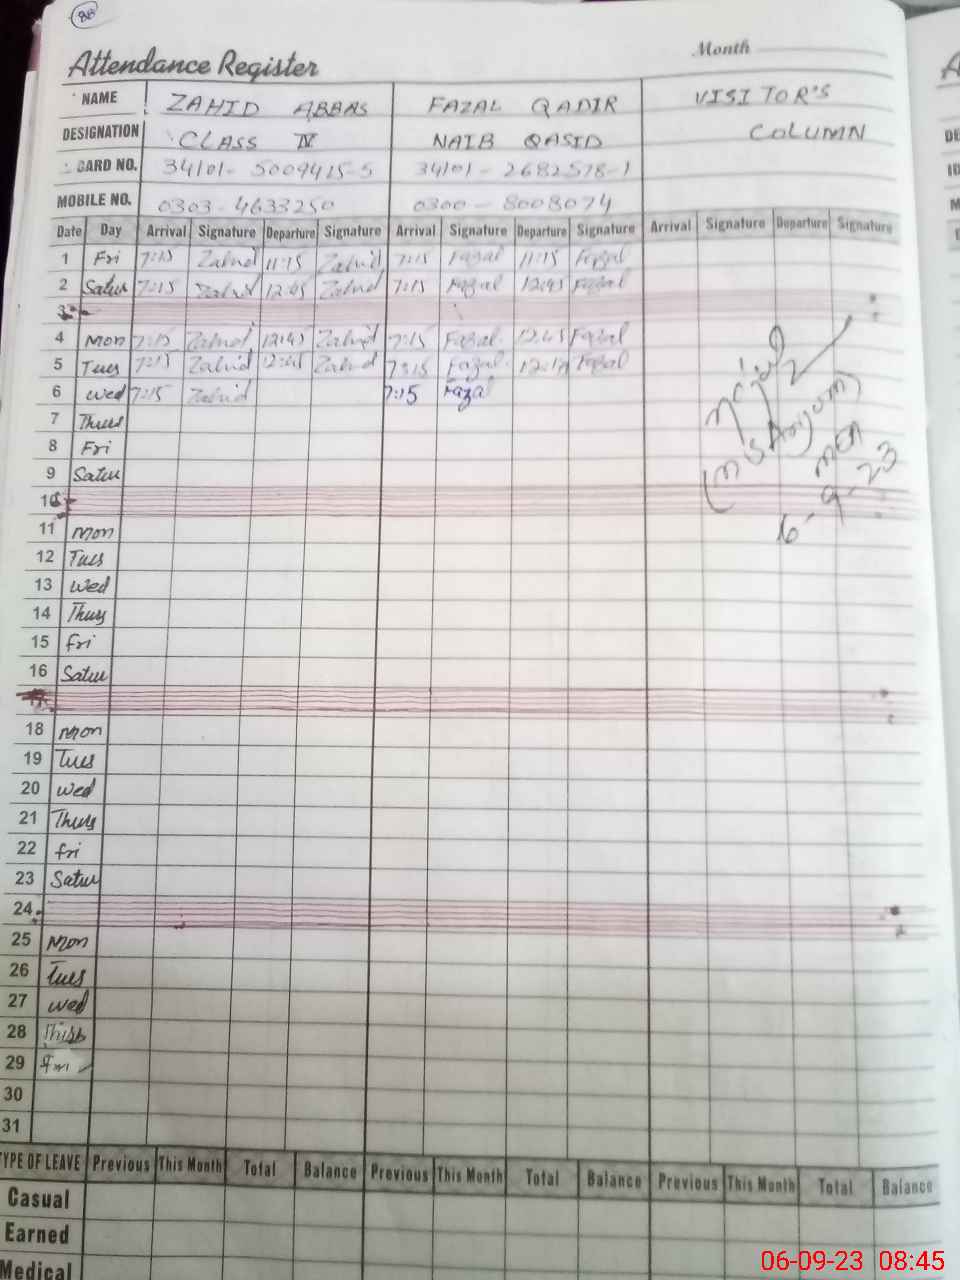 88
Attendance Register Month
NAME ZAHID ABBAS FAZAL QADIR VISITOR'S
DESIGNATION CLASS IV NAIB QASID COLUMN
CARD NO. 34101-5009415-5 34101-2682578-1
MOBILE NO. 0303-4633250 0300-8008074
Date Day Arrival Signature Departure Signature Arrival Signature Departure Signature Arrival Signature Departure Signature
1 Fri 7:15 Zahid 11:15 Zahid 7:15 Fazal 11:15 Fazal
2 Satur 7:15 Zahid 12:45 Zahid 7:15 Fazal 12:45 Fazal
3
4 Mon 7:15 Zahid 12:45 Zahid 7:15 Fazal 12:45 Fazal
5 Tues 7:15 Zahid 12:45 Zahid 7:15 Fazal Fazal
6 Wed 7:15 Zahid 7:15 Fazal
7 Thurs
8 Fri
9 Satur
10
11 Mon
12 Tues
13 Wed
14 Thurs
15 Fri
16 Satur
MEA
6-9-23
18 Mon
19 Tues
20 Wed
21 Thurs
22 Fri
23 Satur
24
25 Mon
26 Tues
27 Wed
28 Thurs
29 Fri
30
31
TYPE OF LEAVE Previous This Month Total Balance Previous This Month Total Balance Previous This Month Total Balance
Casual
Earned
Medical
06-09-23 08:45